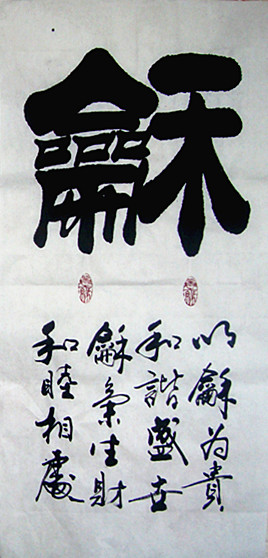 龢
以龢为貴
和諧盛世
龢氣生財
和睦相處